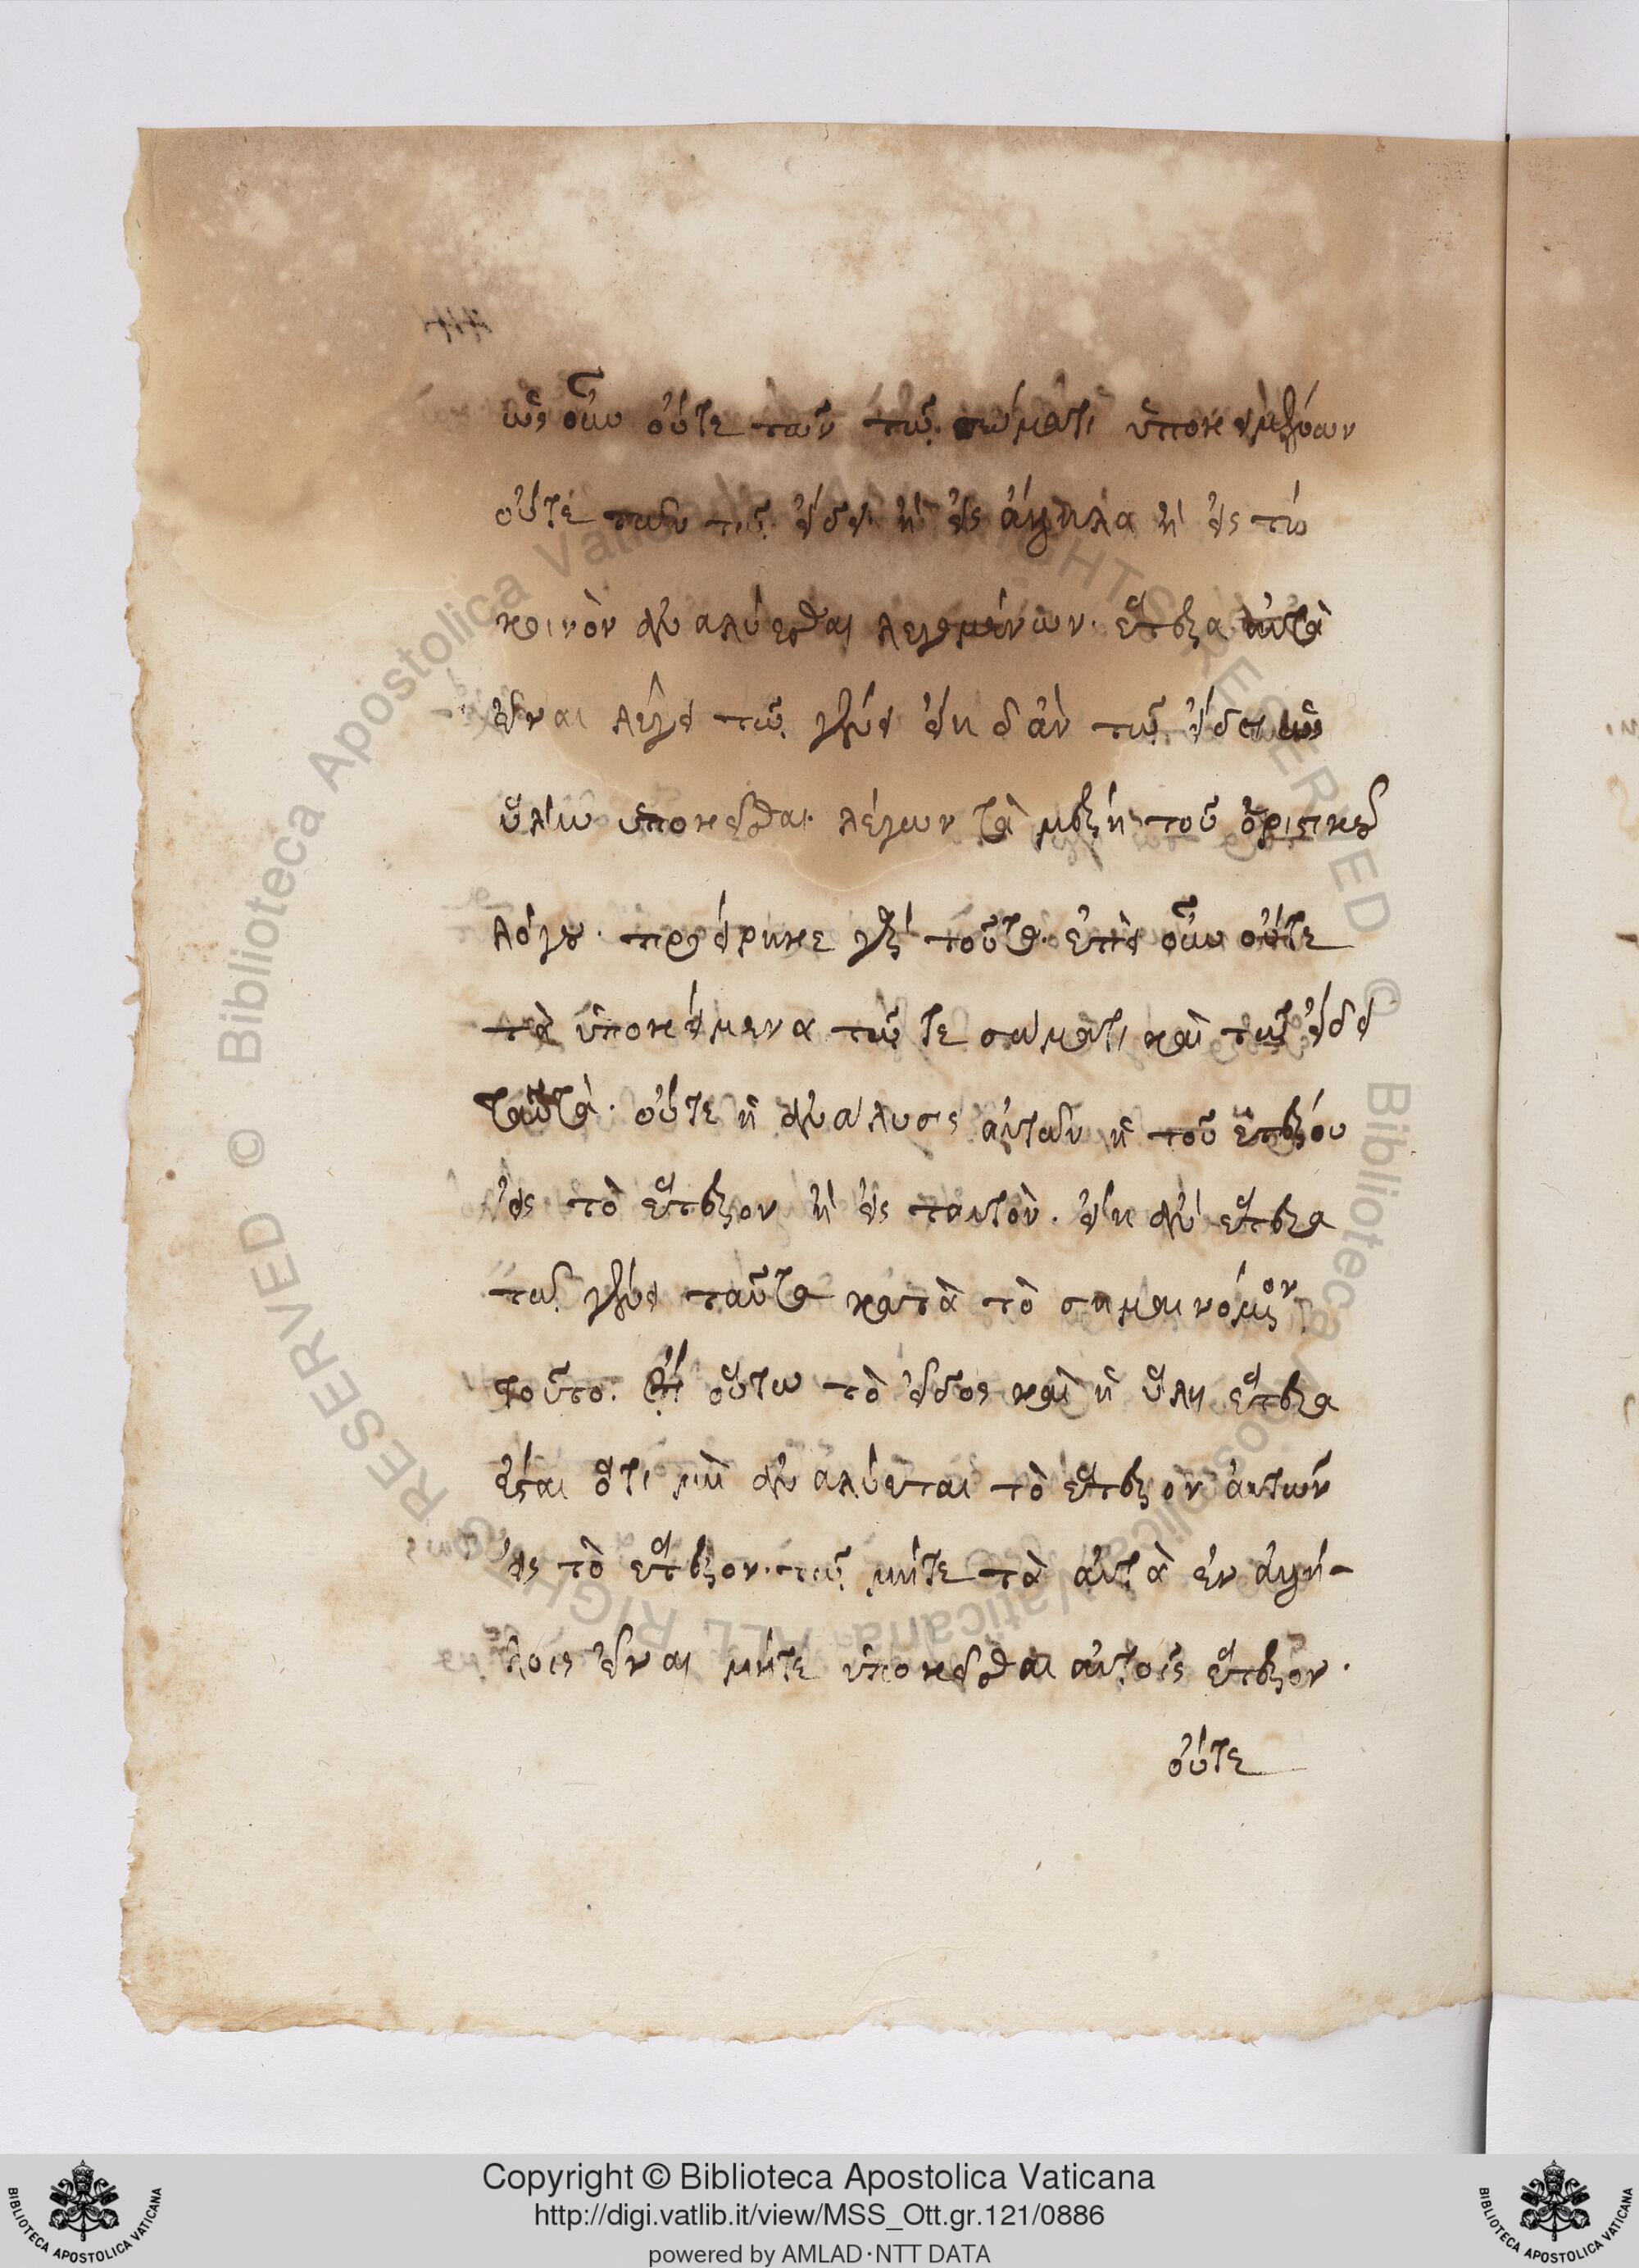 ὡς οὖν οὔτε τῶν τῷ σώματι ὑποκειμένων
οὔτε τῶν τῷ εἴδει ἢ εἰς ἄλληλα ἢ εἰς τὸ
κοινὸν ἀναλύεσθαι λεγομένων. ἕτερα αὐτὰ
εἶναι λέγει τῷ γένει εἴη δ' ἂν τῷ εἴδει ὡς
ὕλην ὑποκεῖσθαι λέγων τὰ μέρη τοῦ ὁριστικοῦ
λόγου. προείρηκε γὰρ τοῦτο. ἐπεὶ οὖν οὔτε
τὰ ὑποκείμενα τῷ τε σώματι καὶ τῷ εἴδει
ταὐτά. οὔτε ἡ ἀνάλυσις αὐτῶν ἢ τοῦ ἑτέρου
εἰς τὸ ἕτερον ἢ εἰς ταυτὸν. εἴη ἂν ἕτερα
τῷ γένει ταῦτα κατὰ τὸ σημαινόμενον
τοῦτο. οὕτω τὸ εἶδος καὶ ἡ ὕλη ἕτερα
ἔσται ὅτι μὴ ἀναλύεται τὸ ἕτερον αὐτῶν
εἰς τὸ ἕτερον. τῷ μήτε τὰ αὐτὰ ἐν ἀλλή-
λοις εἶναι μήτε ὑποκεῖσθαι αὐτοῖς ἕτερον.
οὔτε
Copyright © Biblioteca Apostolica Vaticana
http://digi.vatlib.it/view/MSS_Ott.gr.121/0886
powered by AMLAD·NTT DATA
BIBLIOTECA APOSTOLICA VATICANA
BIBLIOTECA APOSTOLICA VATICANA
© Biblioteca Apostolica Vaticana ALL RIGHTS RESERVED © Biblioteca Apostolica Vaticana ALL RIGHTS RESERVED